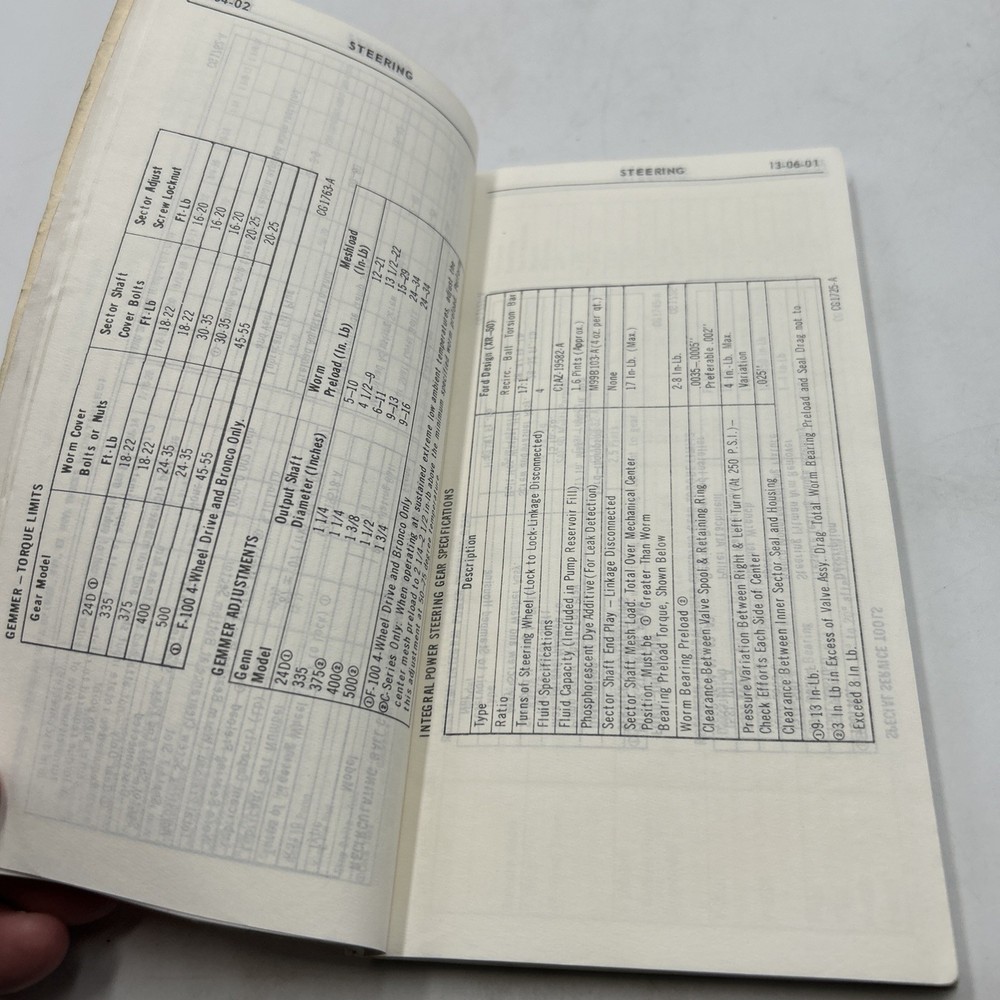 04-02
STEERING
GEMMER – TORQUE LIMITS
Gear Model Worm Cover Bolts or Nuts Ft-Lb Sector Shaft Cover Bolts Ft-Lb Sector Adjust Screw Locknut Ft-Lb
24D ① 18-22 18-22 16-20
335 18-22 18-22 16-20
375 24-35 30-35 16-20
400 24-35 30-35 20-25
500 45-55 45-55 20-25
① F-100 4-Wheel Drive and Bronco Only.
CG1763-A
GEMMER ADJUSTMENTS
Genn Model Output Shaft Diameter (Inches) Worm Preload (In. Lb) Meshload (In-Lb)
24D① 1 1/4 5-10 12-21
335 1 1/4 4 1/2-9 13 1/2-22
375② 1 3/8 6-11 15-29
400② 1 1/2 9-13 24-34
500② 1 3/4 9-16 24-34
①F-100 4-Wheel Drive and Bronco Only
②C-Series Only: When operating at sustained extreme low ambient temperatures, adjust the
center mesh preload to 2 1/4-2 1/2 in-lb above the minimum specified worm preload. Perform
this adjustment at 50-75 degree temperature
STEERING 13-06-01
INTEGRAL POWER STEERING GEAR SPECIFICATIONS
Description Ford Design (XR-50)
Type Recirc. Ball Torsion Bar
Ratio 17:1
Turns of Steering Wheel (Lock to Lock-Linkage Disconnected) 4
Fluid Specifications C1AZ-19582-A
Fluid Capacity (Included in Pump Reservoir Fill) 1.6 Pints (Approx.)
Phosphorescent Dye Additive (For Leak Detection) M99B103-A (4 oz per qt.)
Sector Shaft End Play – Linkage Disconnected None
Sector Shaft Mesh Load: Total Over Mechanical Center 17 In-Lb. (Max.)
Position. Must be ① Greater Than Worm
Bearing Preload Torque, Shown Below
Worm Bearing Preload ② 2-8 In-Lb.
Clearance-Between Valve Spool & Retaining Ring .0035-.0005"
Preferable .002"
Pressure Variation Between Right & Left Turn (At 250 P.S.I.)– 4 In-Lb. Max.
Check Efforts Each Side of Center Variation
Clearance Between Inner Sector Seal and Housing .025"
①9-13 In-Lb.
②3 In Lb in Excess of Valve Assy. Drag Total Worm Bearing Preload and Seal Drag not to
Exceed 8 In Lb.
CG1725-A